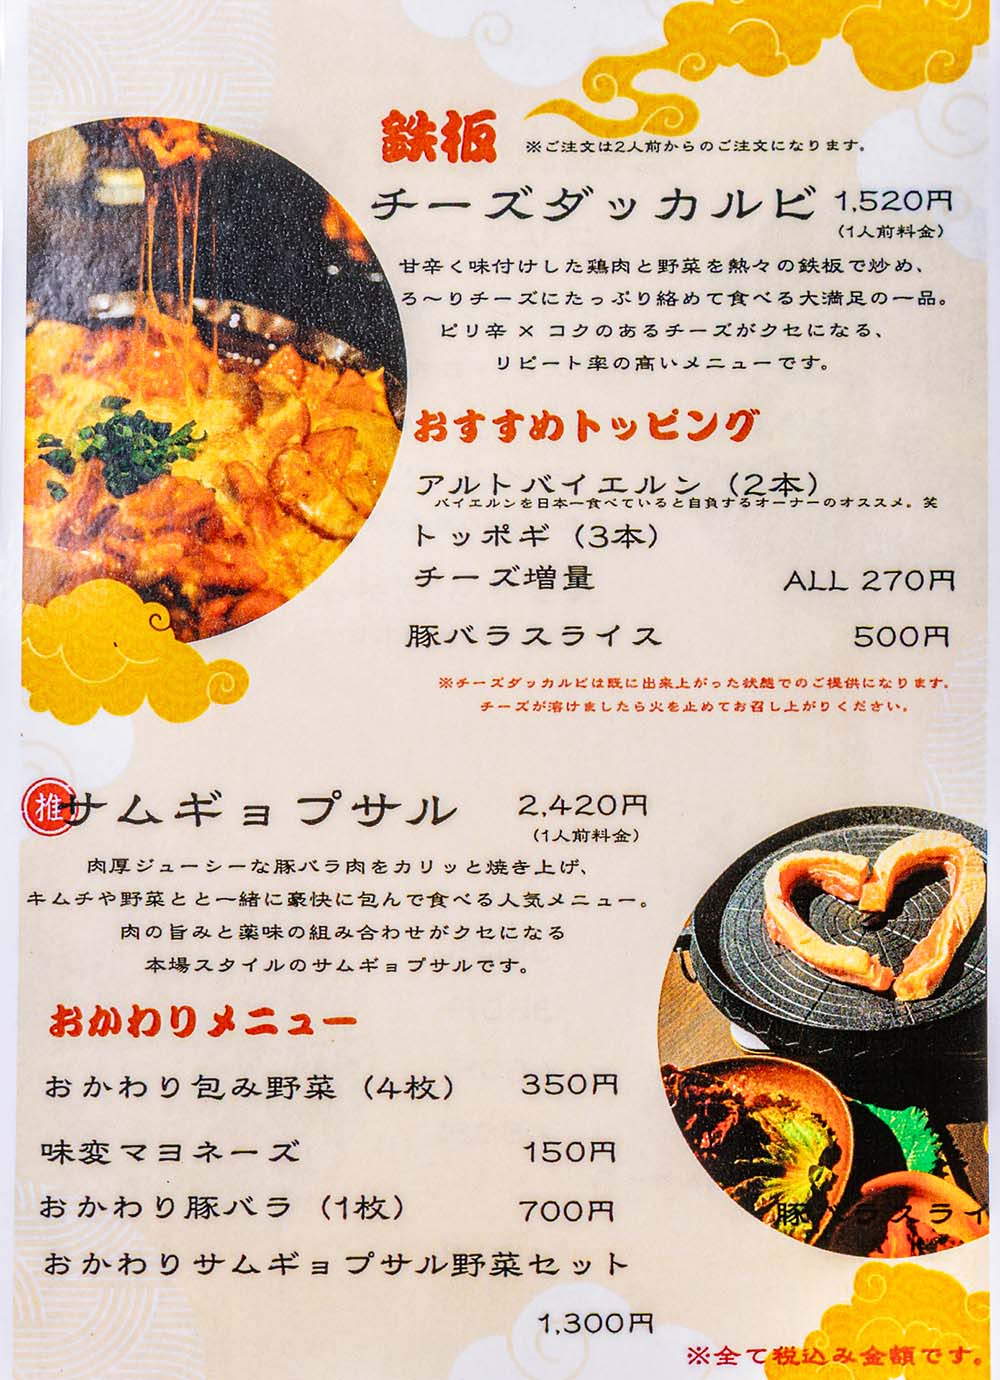 鉄板 ※ご注文は2人前からのご注文になります。
チーズダッカルビ 1,520円
(1人前料金)
甘辛く味付けした鶏肉と野菜を熱々の鉄板で炒め、
ろ～りチーズにたっぷり絡めて食べる大満足の一品。
ピリ辛 × コクのあるチーズがクセになる、
リピート率の高いメニューです。
おすすめトッピング
アルトバイエルン（2本）
バイエルンを日本一食べていると自負するオーナーのオススメ。笑
トッポギ（3本）
チーズ増量 ALL 270円
豚バラスライス 500円
※チーズダッカルビは既に出来上がった状態でのご提供になります。
チーズが溶けましたら火を止めてお召し上がりください。
推 サムギョプサル 2,420円
(1人前料金)
肉厚ジューシーな豚バラ肉をカリッと焼き上げ、
キムチや野菜とと一緒に豪快に包んで食べる人気メニュー。
肉の旨みと薬味の組み合わせがクセになる
本場スタイルのサムギョプサルです。
おかわりメニュー
おかわり包み野菜（4枚） 350円
味変マヨネーズ 150円
おかわり豚バラ（1枚） 700円
豚バラスライ
おかわりサムギョプサル野菜セット
1,300円
※全て税込み金額です。